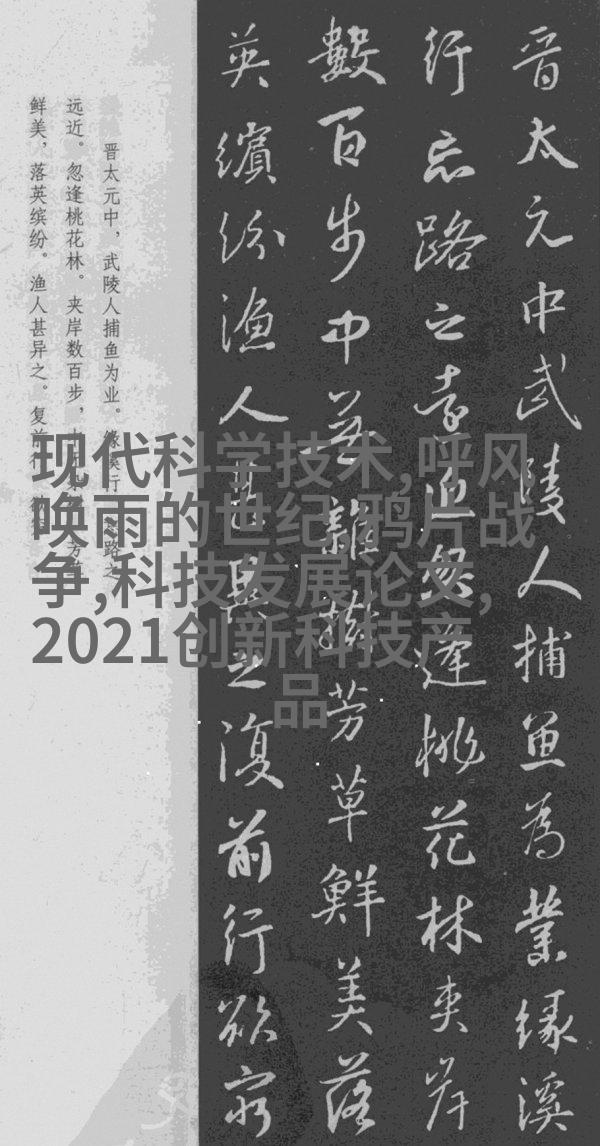 晋太元中武陵人捕魚為業緣溪
行忘路之遠近忽逢桃花林夹岸
數百步中無雜樹芳草鮮美落
英繽紛漁人甚異之復前行欲窮
晋太元中，武陵人捕鱼为业。缘溪行，路之
远近。忽逢桃花林。夹岸数百步，芳草
鲜美，落英缤纷。渔人甚异之。复前行
现代科学技术,呼风
唤雨的世纪,鸦片战
争,科技发展论文,
2021创新科技产
品